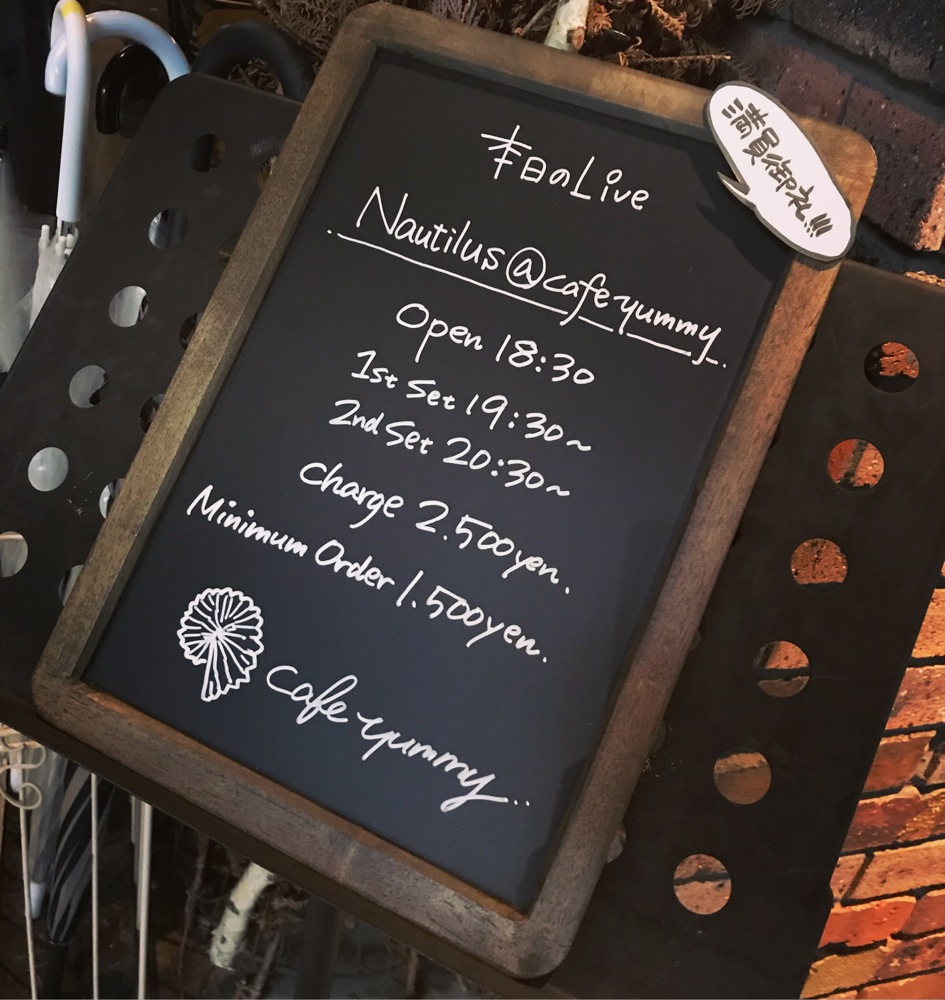 本日のLive
満員御礼!!!
Nautilus@cafe yummy..
Open 18:30
1st Set 19:30~
2nd Set 20:30~
Charge 2.500yen.
Minimum Order 1.500yen.
Cafe yummy...